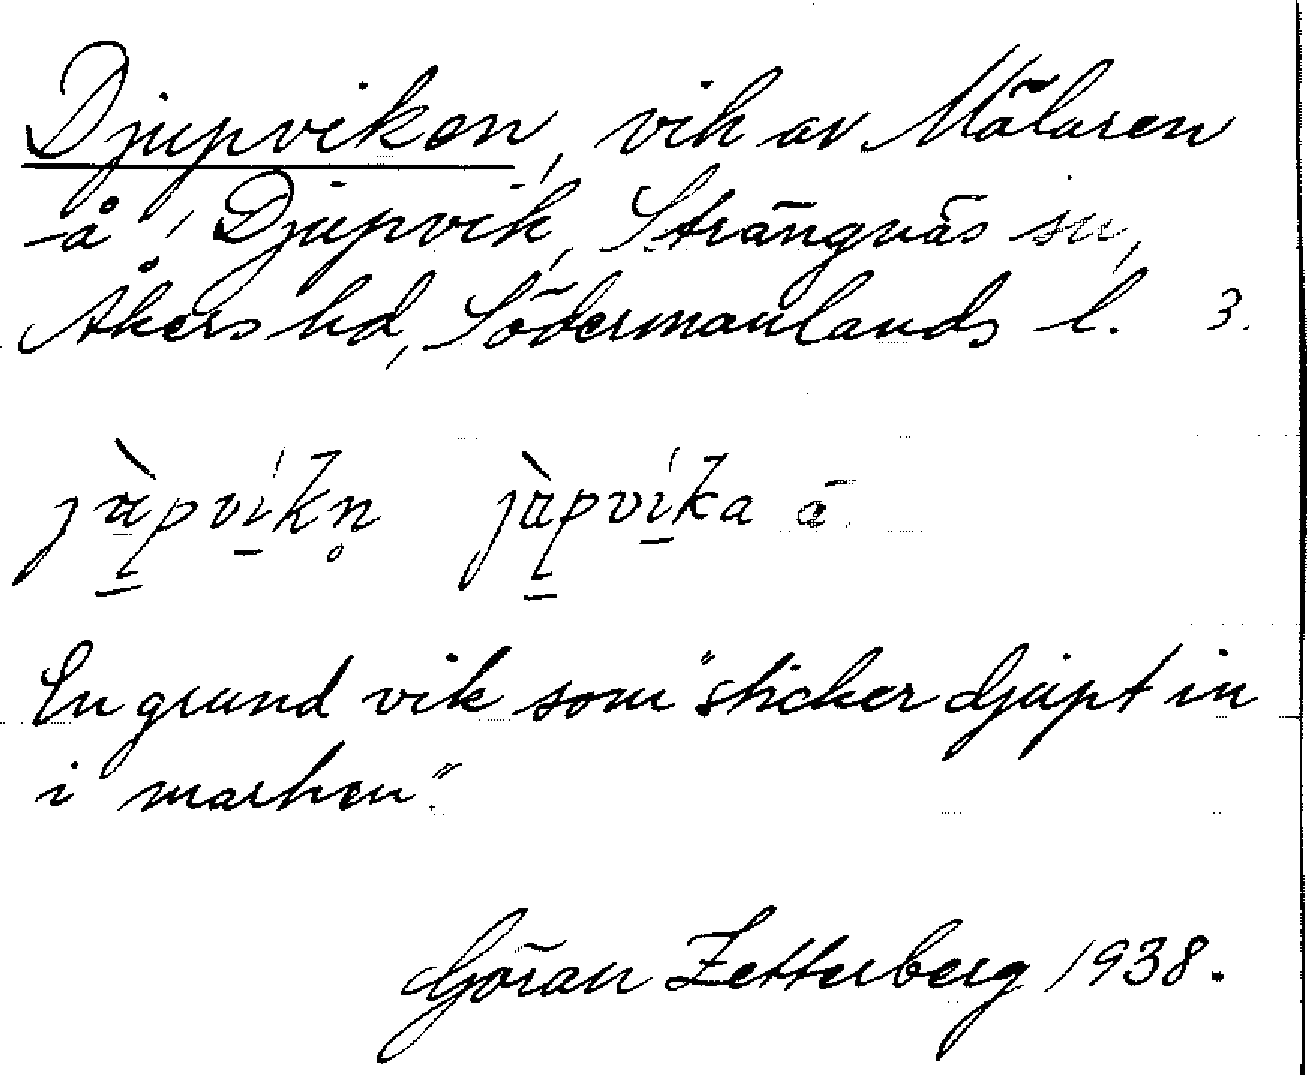 Djupviken, vik av Mälaren
å Djupvik, Strängnäs sn,
Åkers hd, Södermanlands l. 3.
En grund vik som "sticker djupt in
i marken".
Göran Zetterberg 1938.